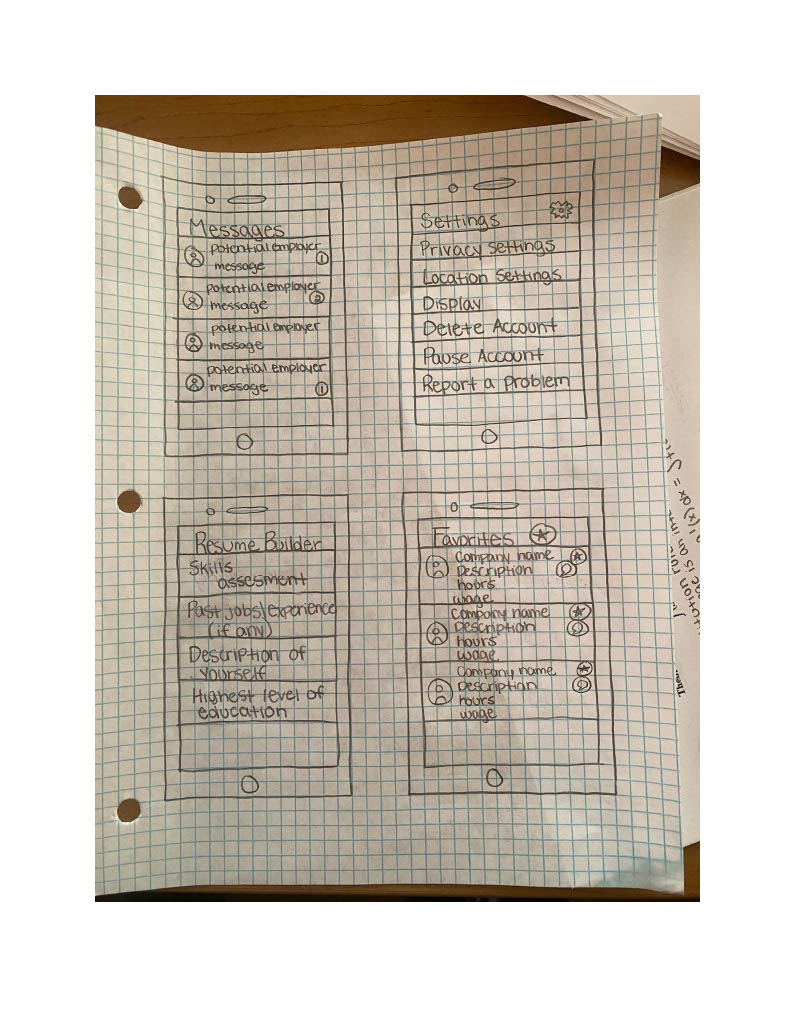 Messages
potential employer
message
1
potential employer
message
2
potential employer
message
potential employer
message
1
Settings
Privacy settings
Location Settings
Display
Delete Account
Pause Account
Report a problem
Resume Builder
Skills
assesment
Past jobs/experience
(if any)
Description of
yourself
Highest level of
education
Favorites
Company name
Description
hours
wage
Company name
Description
hours
wage
Company name
Description
hours
wage